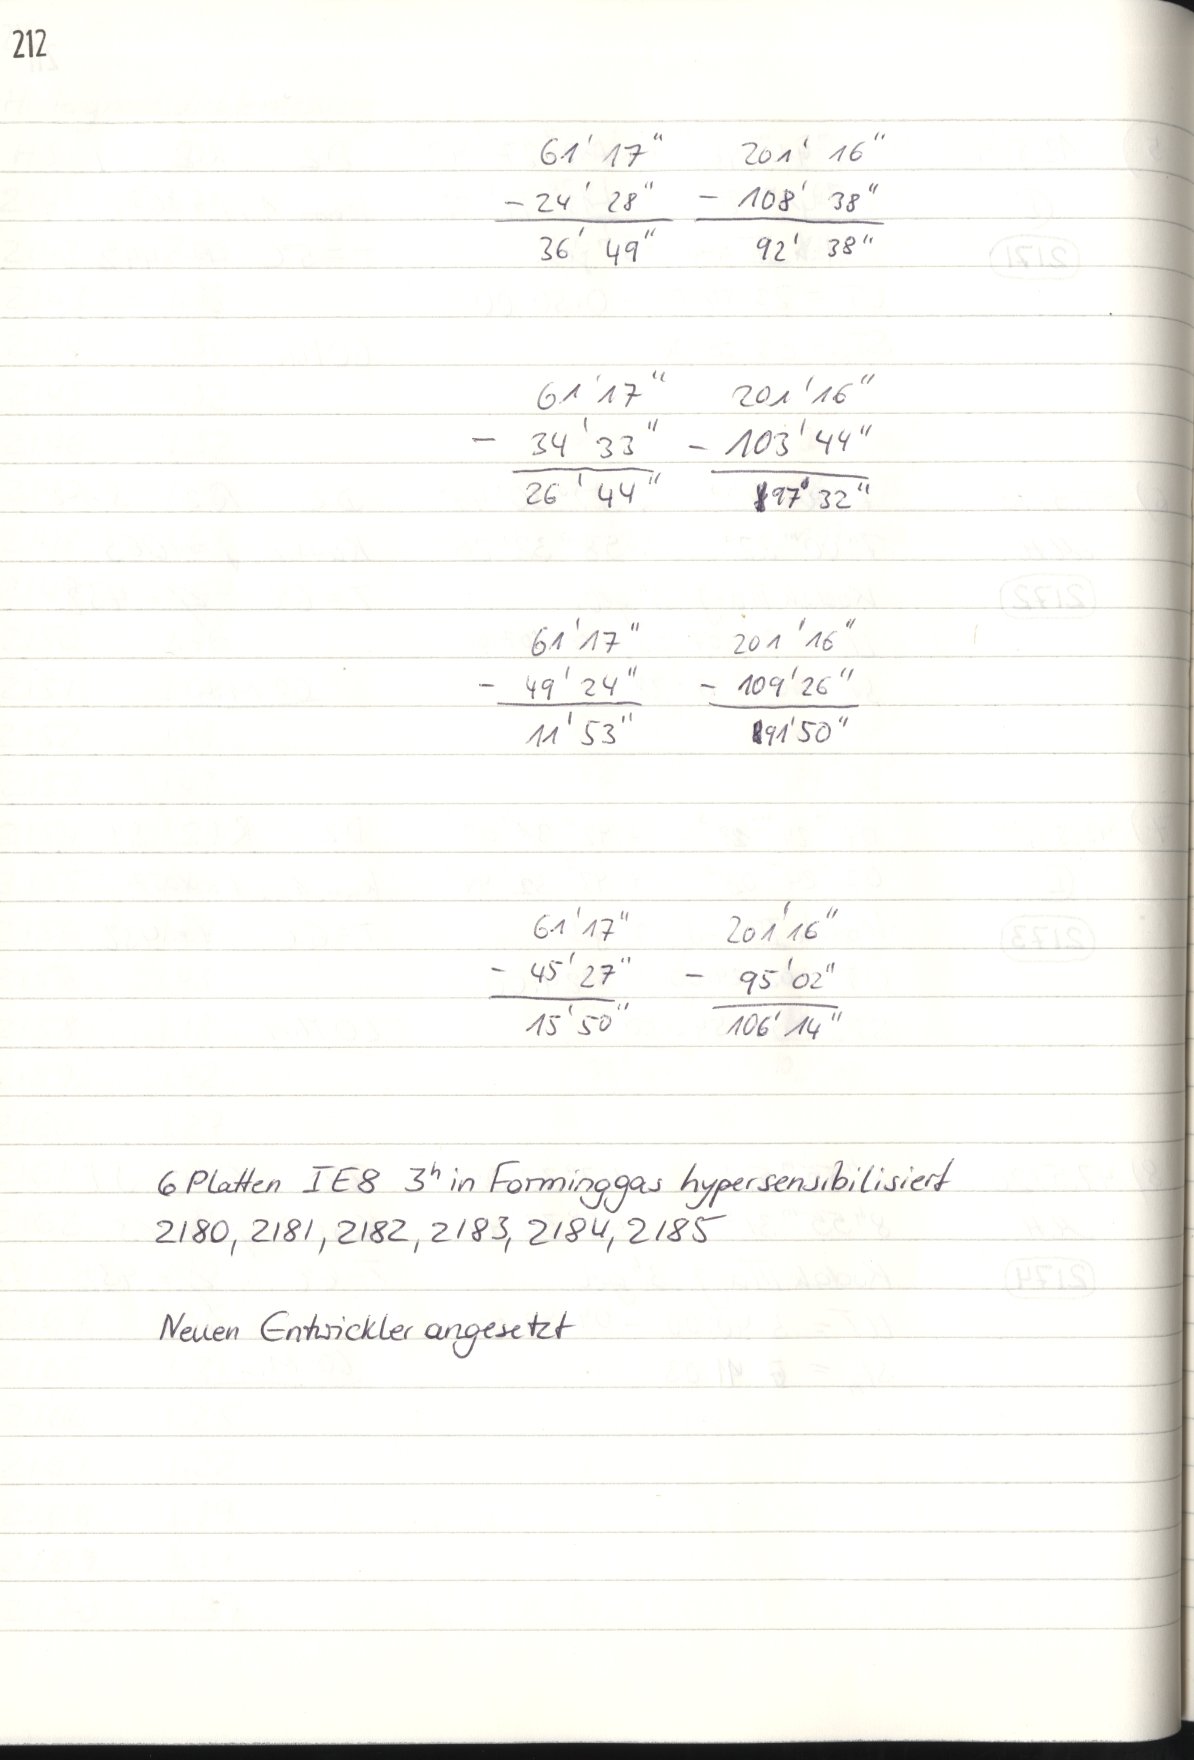 212
61' 17" 201' 16"
- 24' 28" - 108' 38"
36' 49" 92' 38"
61' 17" 201' 16"
- 34' 33" - 103' 44"
26' 44" 97' 32"
61' 17" 201' 16"
- 49' 24" - 109' 26"
11' 53" 91' 50"
61' 17" 201' 16"
- 45' 27" - 95' 02"
15' 50" 106' 14"
6 Platten IE8 3h in Forminggas hypersensibilisiert
2180, 2181, 2182, 2183, 2184, 2185
Neuen Entwickler angesetzt